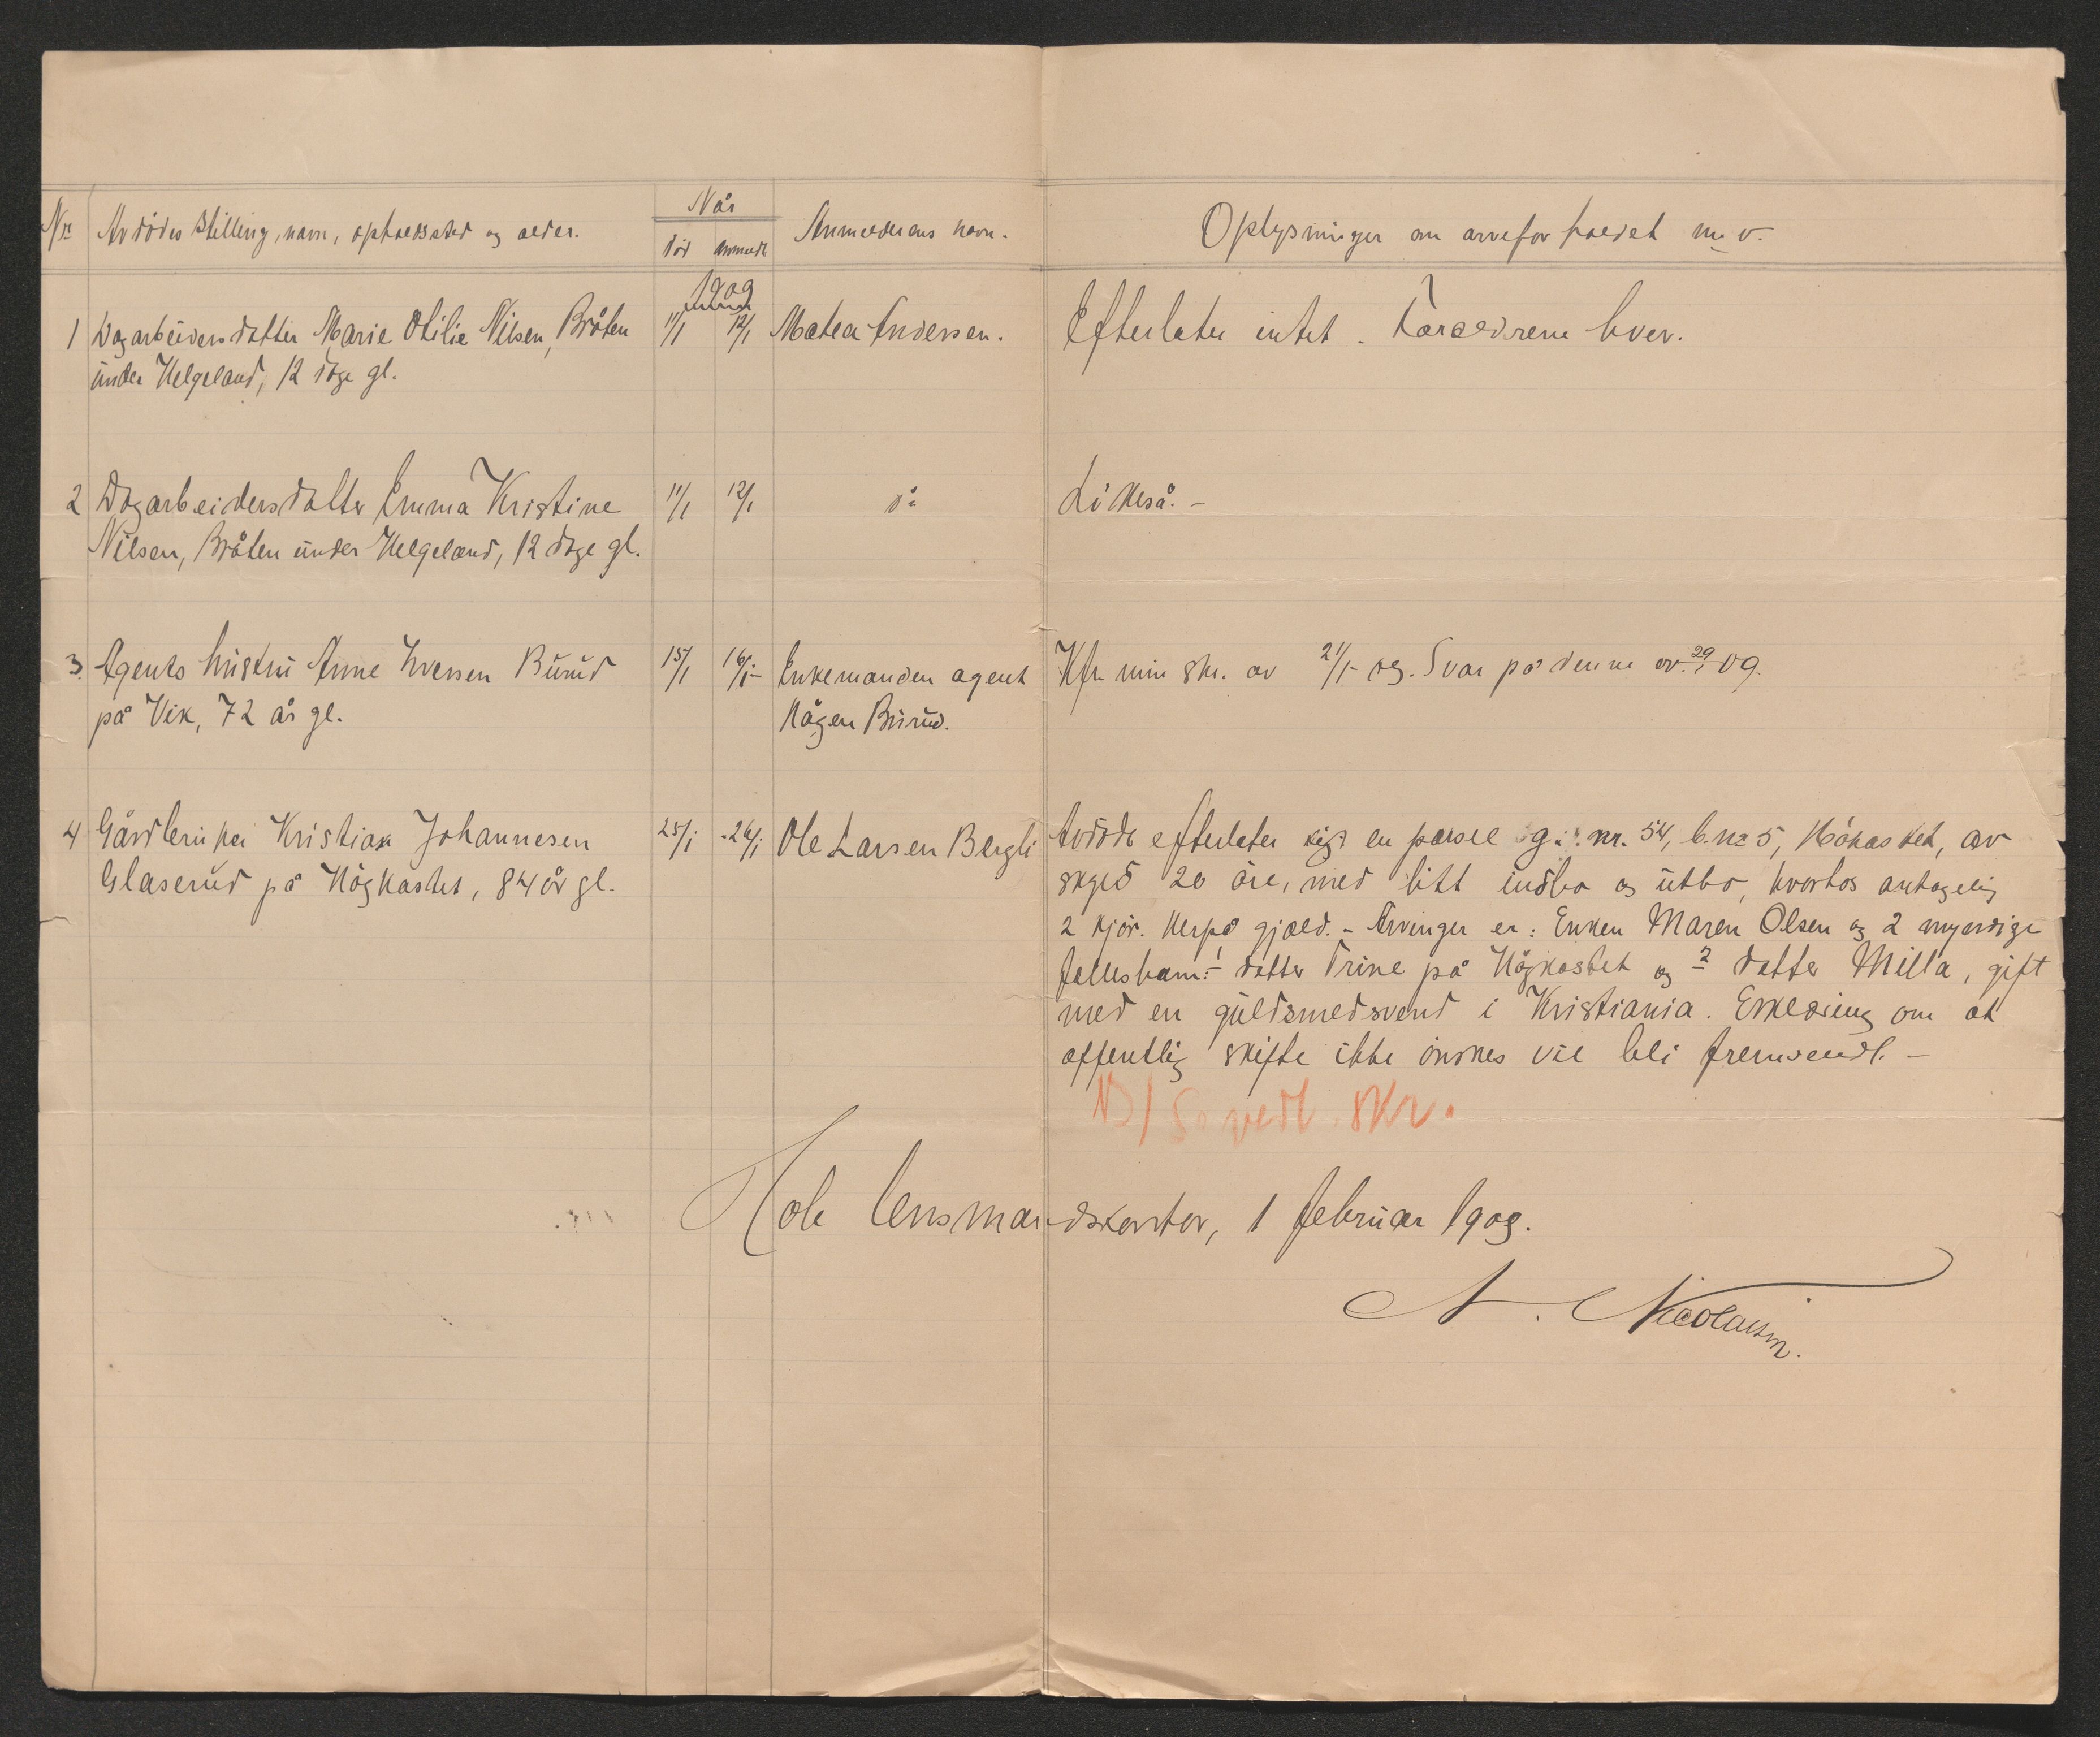 Nr. Avdødes stilling, navn, opholdssted og alder. Når Anmelderens navn. Oplysninger om arveforholdet m. v.
død anmeldt
1909
1 Dagarbeidersdatter Marie Otilie Nilsen, Bråten 11/1 12/1 Matea Andersen. Efterlater intet. Forældrene lever.
under Helgeland, 12 dage gl.
2 Dagarbeidersdatter Emma Kristine 11/1 12/1 do Likeså. -
Nilsen, Bråten under Helgeland, 12 dage gl.
3. Agents hustru Anne Iversen Burud 15/1 16/1- Enkemanden agent Kfr. min skr. av 21/1- 09. Svar på denne av 29/1 09.
på Vik, 72 år gl. Hågen Burud.
4 Gårdbruker Kristian Johannesen 25/1 -26/1 Ole Larsen Bergli Avdøde efterlater sig en parsel g. nr. 54, b. nr 5, Håkastet, av
Glaserud på Högkastet, 84 år gl. skyld 20 øre, med litt indbo og utbo, hvorhos antagelig
2 kjør. Herpå gjæld. - Arvinger er: Enken Maren Olsen og 2 myndige
fellesbarn: 1 datter Trine på Högkastet og 2 datter Milla, gift
med en guldsmedsvend i Kristiania. Erklæring om at
offentlig skifte ikke ønskes vil bli fremsendt. -
NB/ Se vedl. skr.
Hole lensmandskontor, 1 februar 1909.
A. Nicolaisen.